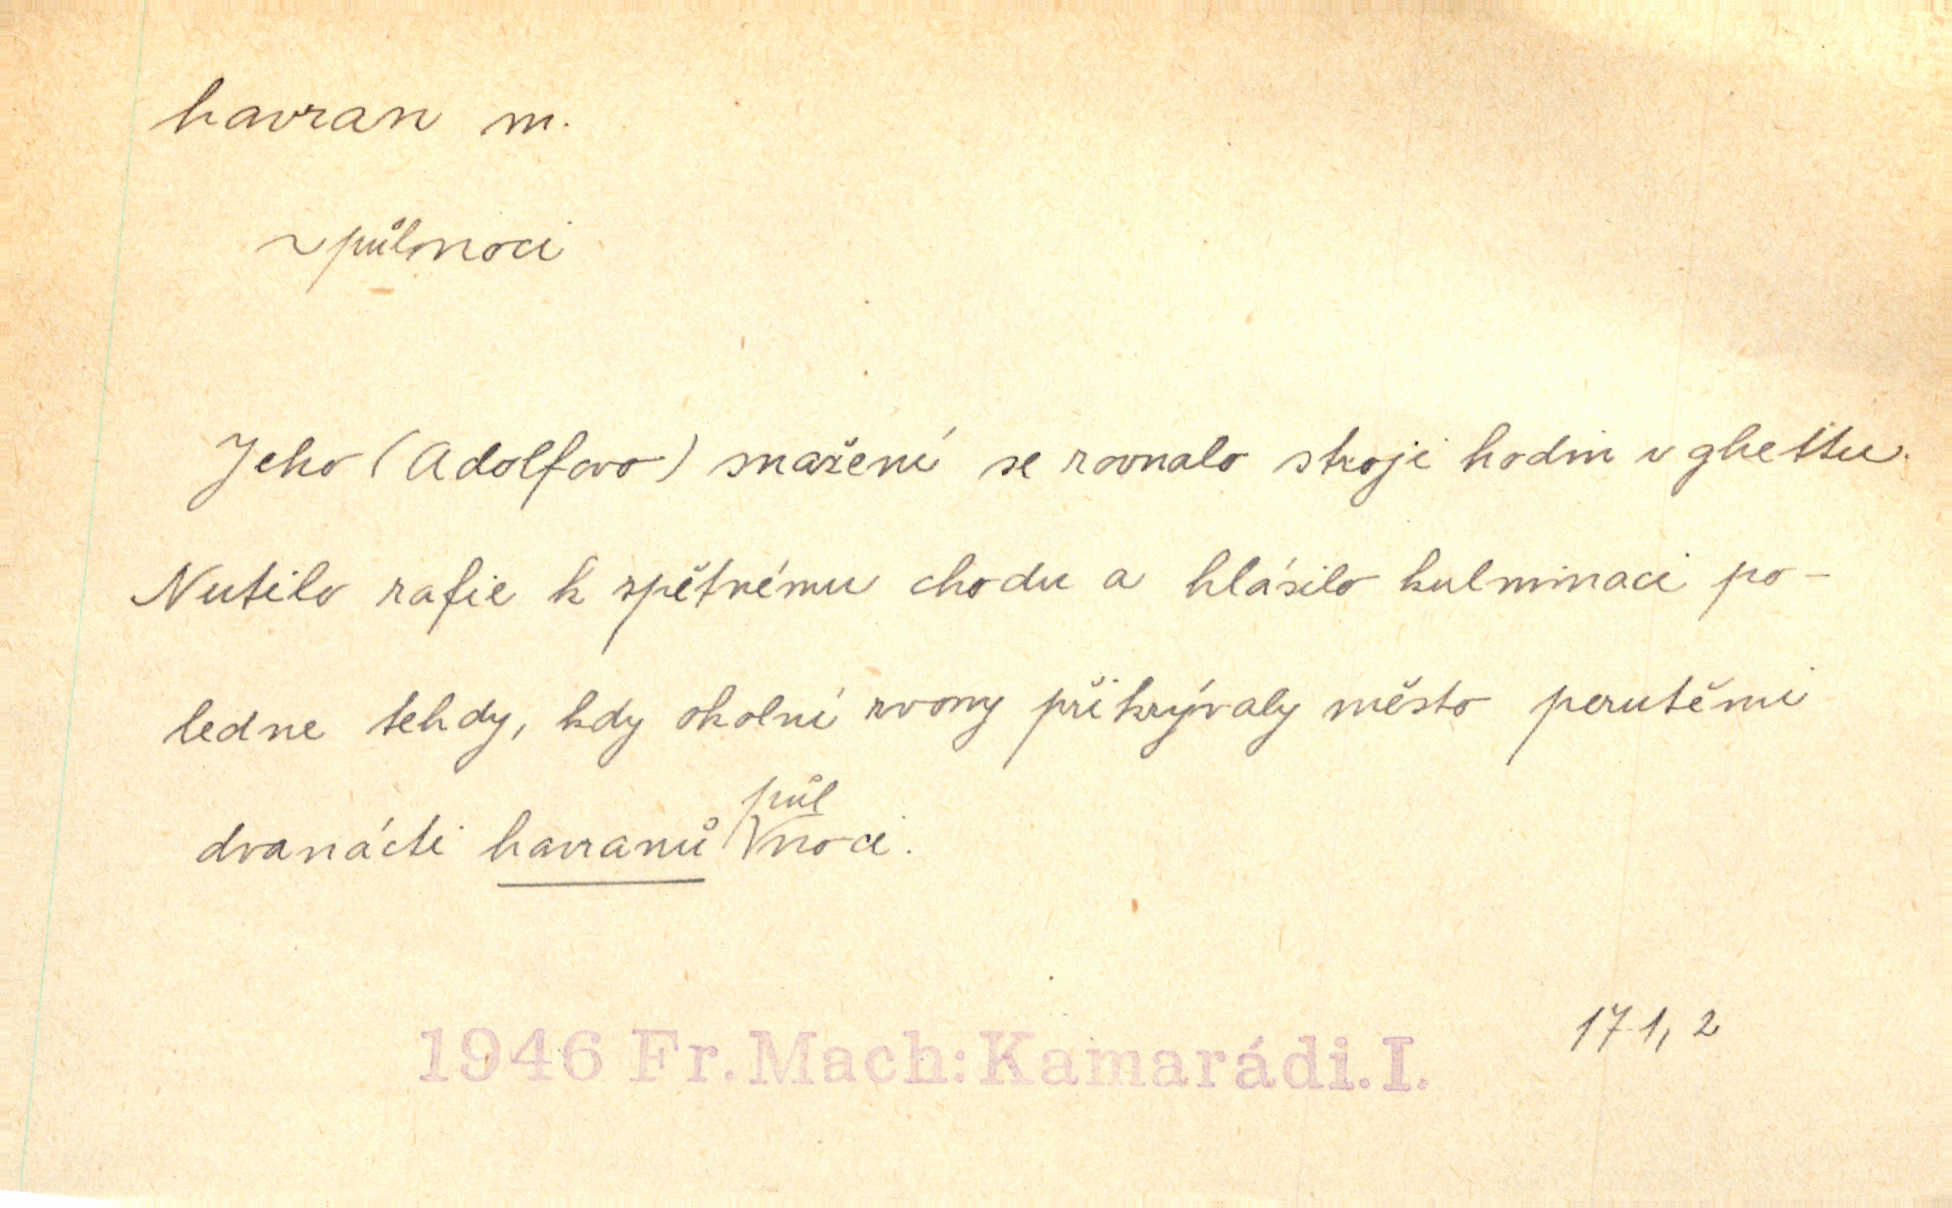 havran m.
~ půlnoci
Jeho (Adolfovo) snažení se rovnalo stroji hodin v ghettu.
Nutilo rafie k zpětnému chodu a hlásilo kulminaci po-
ledne tehdy, kdy okolní zvony přikrývaly město perutěmi
dvanácti havranů půlnoci.
171, 2
1946 Fr. Mach: Kamarádi. I.